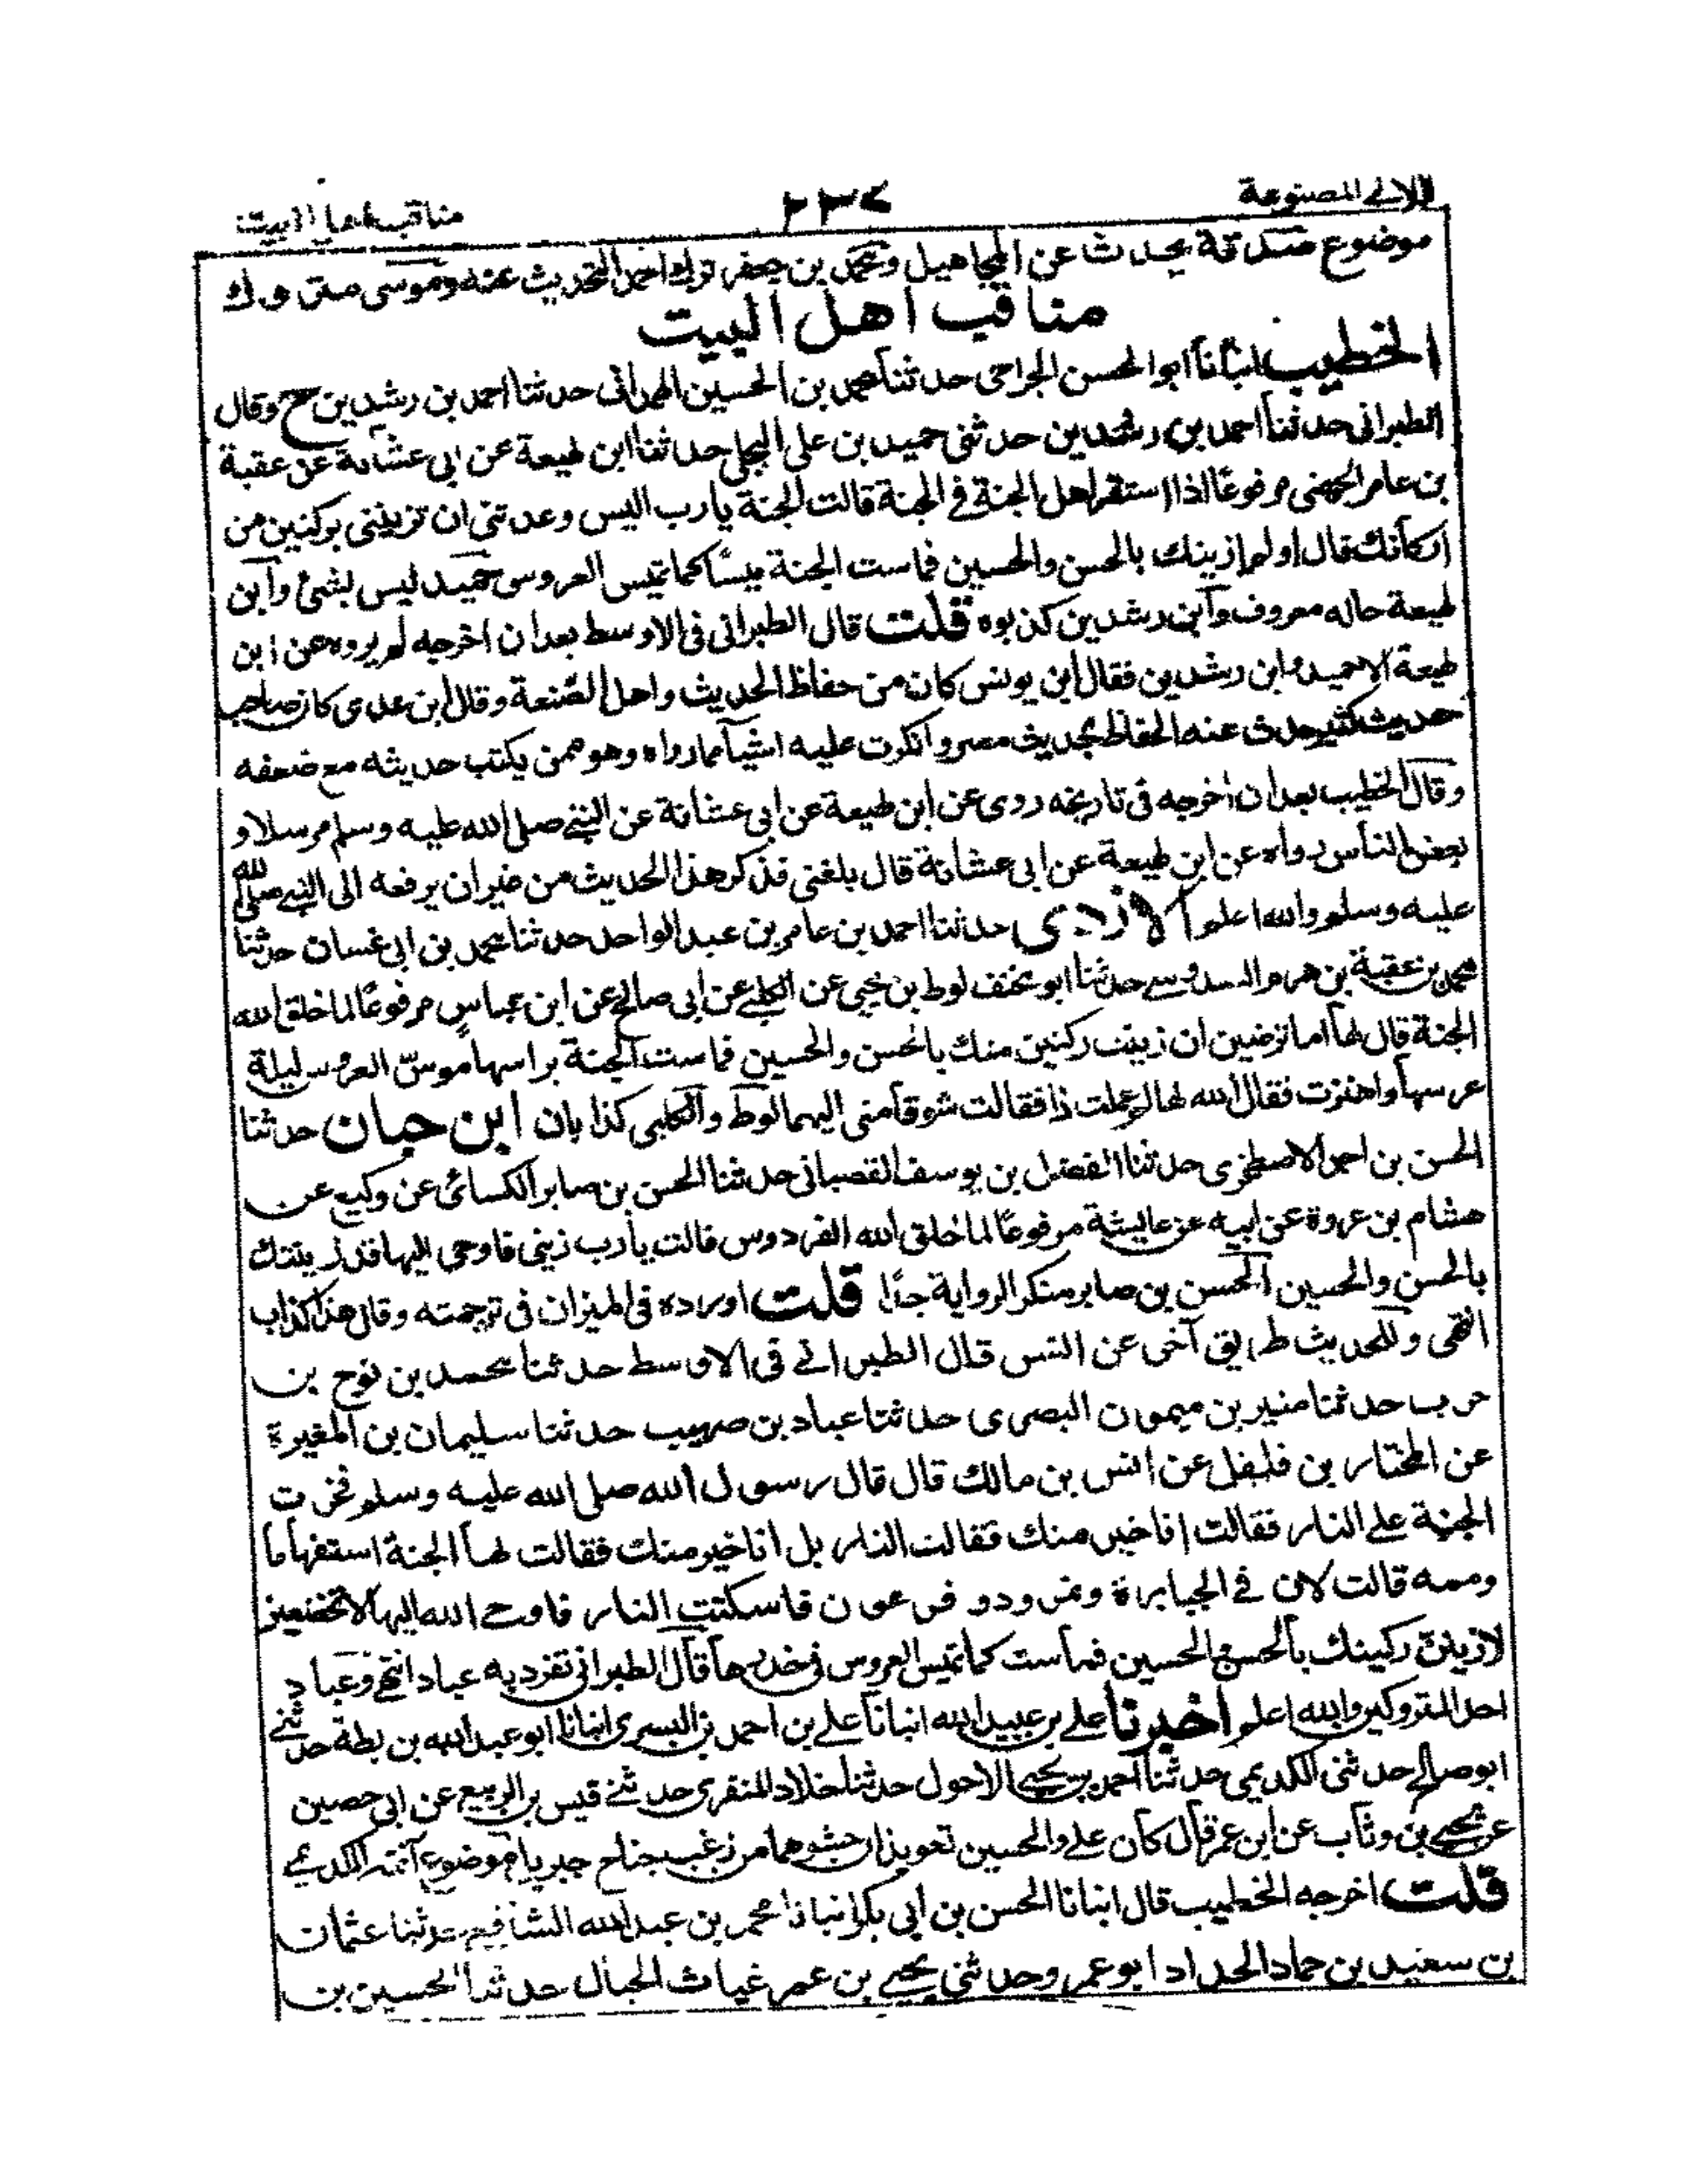 اللالے المصنوعة ٢٣٢ مناقب اهل البيت
موضوع صدقة يحدث عن المجاهيل ومحمد بن جعفر ترك احمد التحديث عنه وموسى متروك
مناقب اهل البيت
الخطيب انبأنا ابو الحسن الجراحى حدثنا محمد بن الحسين الهمدانى حدثنا احمد بن رشدين ح وقال
الطبرانى حدثنا احمد بن رشدين حدثنى حميد بن على البجلى حدثنا ابن لهيعة عن ابى عشانة عن عقبة
بن عامر الجهنى مرفوعًا اذا استقر اهل الجنة فے الجنة قالت الجنة يا رب اليس وعدتنى ان تزيننى بركنين من
اركانك قال اولم ازينك بالحسن والحسين فماست الجنة ميسًا كما تميس العروس حميد ليس بشئ وابن
لهيعة حاله معروف وابن رشدين كذبوه قلت قال الطبرانى فى الاوسط بعد ان اخرجه لم يروه عن ابن
لهيعة الا حميد وابن رشدين فقال ابن يونس كان من حفاظ الحديث واهل الصنعة وقال ابن عدى كان صاحب
حديث كثير حدث عنه الحفاظ بحديث مصر وانكرت عليه اشيآ مما رواه وهو ممن يكتب حديثه مع ضعفه
وقال الخطيب بعد ان اخرجه فى تاريخه روى عن ابن لهيعة عن ابى عشانة عن النبے صلى الله عليه وسلم مرسلا و
بعض الناس رواه عن ابن لهيعة عن ابى عشانة قال بلغنى فذكر هذا الحديث من غير ان يرفعه الى النبے صلى الله
عليه وسلم والله اعلم الازدى حدثنا احمد بن عامر بن عبد الواحد حدثنا محمد بن ابى غسان حدثنا
محمد بن عقبة بن هرم السدوسے حدثنا ابو مخنف لوط بن يحيى عن الكلبے عن ابى صالح عن ابن عباس مرفوعًا لما خلق الله
الجنة قال لها اما ترضين ان زينت ركنين منك بالحسن والحسين فماست الجنة براسها موسّ العروس ليلة
عرسها واهتزت فقال الله لها لم عملت ذا فقالت شوقا منى اليهما لوط والكلبى كذابان ابن حبان حدثنا
الحسن بن احمد الاصطخرى حدثنا الفضل بن يوسف القصبانى حدثنا الحسن بن صابر الكسائى عن وكيع عن
هشام بن عروة عن ابيه عن عايشة مرفوعًا لما خلق الله الفردوس قالت يا رب زينى فاوحى اليها قد زينتك
بالحسن والحسين الحسن بن صابر منكر الرواية جدًا قلت اورده فى الميزان فى ترجمته وقال هذا كذاب
انتهى وللحديث طريق آخر عن انس قال الطبرانے فى الاوسط حدثنا محمد بن نوح بن
حرب حدثنا منير بن ميمون البصرى حدثنا عباد بن صهيب حدثنا سليمان بن المغيرة
عن المختار بن فلفل عن انس بن مالك قال قال رسول الله صلى الله عليه وسلم فخرت
الجنة علے النار فقالت انا خير منك فقالت النار بل انا خير منك فقالت لها الجنة استفهاما
وممه قالت لان فے الجبابرة ونمرود وفرعون فاسكتت النار فاوحے الله اليها لا تخضعين
لازينن ركنيك بالحسن والحسين فماست كما تميس العروس فى خدرها قال الطبرانى تفرد به عباد انتهے وعباد
احد المتروكين والله اعلم اخبرنا علے بن عبيد الله انبانا علے بن احمد بن البسرى انبانا ابو عبد الله بن بطة حدثنے
ابو صالح حدثنى الكديمى حدثنا احمد بن يحيے الاحول حدثنا خلاد المنقرى حدثنے قيس بن الربيع عن ابى حصين
عن يحيے بن وثاب عن ابن عمر قال كان علے والحسين تعويذان حشوهما من زغب جناح جبريل موضوع آفته الكديمے
قلت اخرجه الخطيب قال انبانا الحسن بن ابى بكر انبانا محمد بن عبد الله الشافعے حدثنا عثمان
بن سعيد بن حماد الحداد ابو عمر وحدثنى يحيے بن عمر غياث الجبال حدثنا الحسين بن